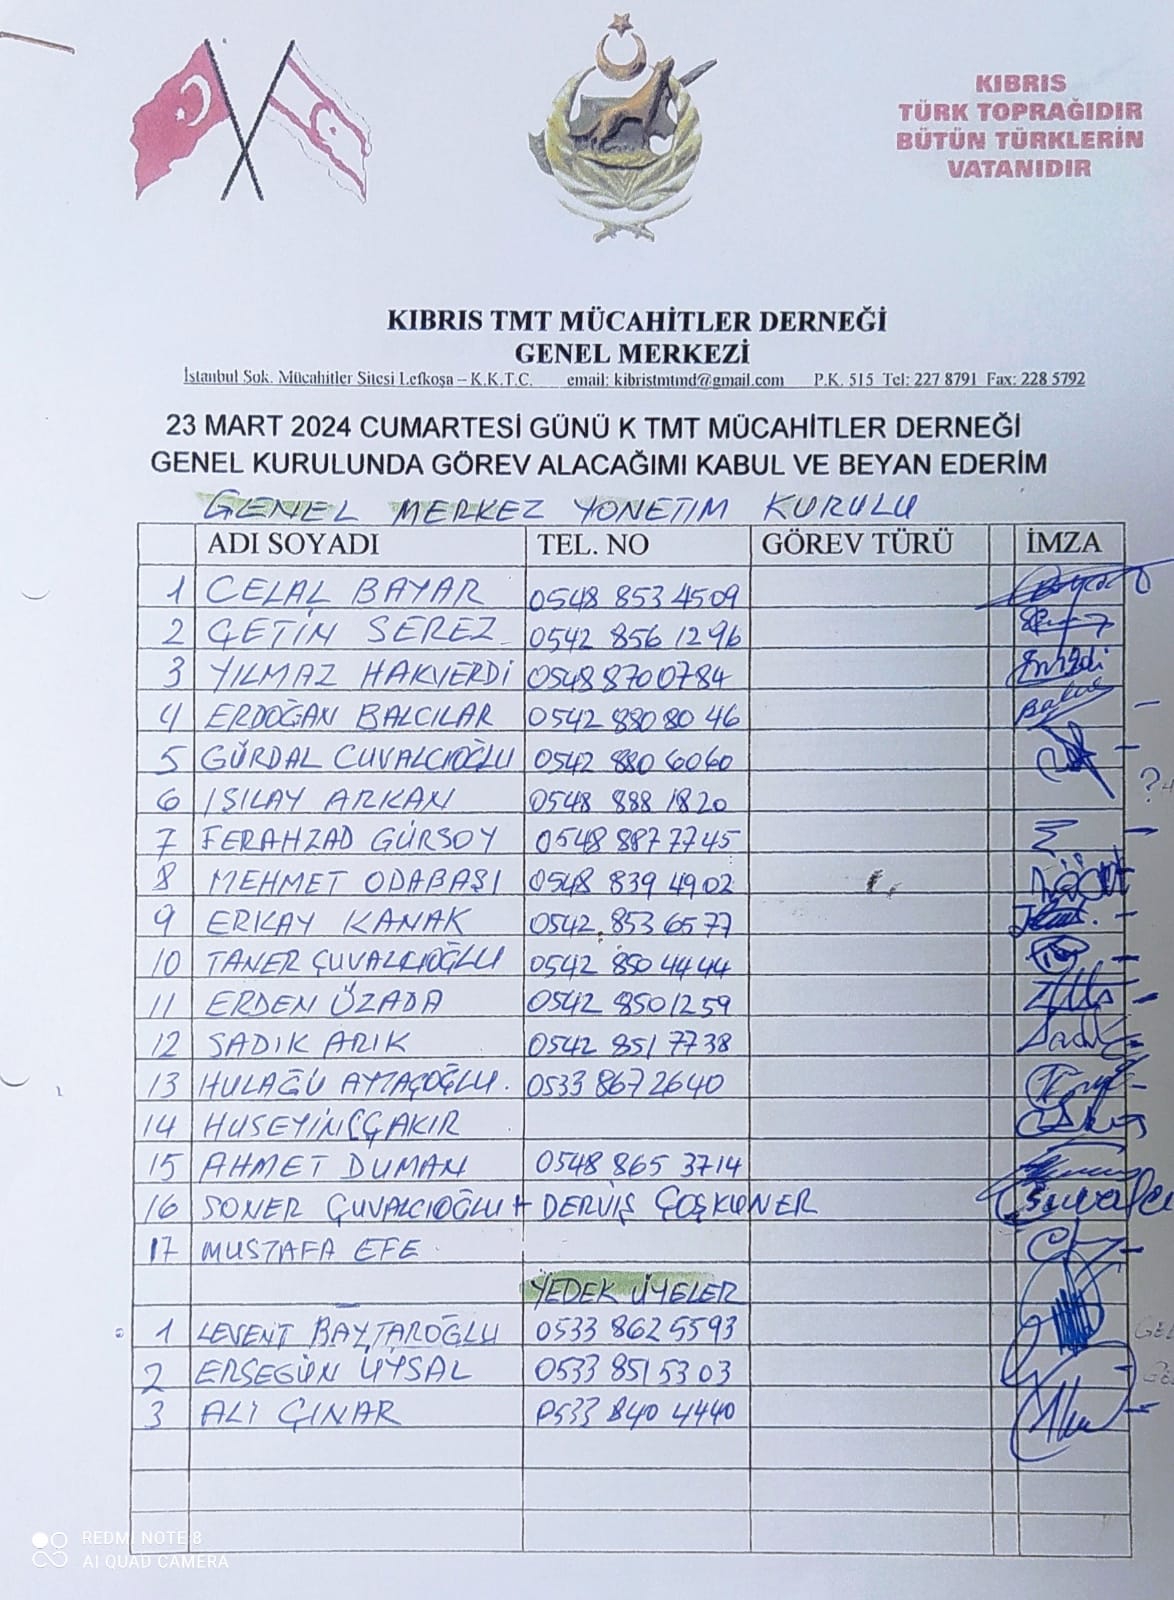 KIBRIS
TÜRK TOPRAĞIDIR
BÜTÜN TÜRKLERİN
VATANIDIR
KIBRIS TMT MÜCAHİTLER DERNEĞİ
GENEL MERKEZİ
İstanbul Sok. Mücahitler Sitesi Lefkoşa – K.K.T.C. email: kibristmtmd@gmail.com P.K. 515 Tel: 227 8791 Fax: 228 5792
23 MART 2024 CUMARTESİ GÜNÜ K TMT MÜCAHİTLER DERNEĞİ
GENEL KURULUNDA GÖREV ALACAĞIMI KABUL VE BEYAN EDERİM
GENEL MERKEZ YÖNETİM KURULU
ADI SOYADI TEL. NO GÖREV TÜRÜ İMZA
1 CELAL BAYAR 0548 853 4509
2 ÇETİN SEREZ 0542 856 12 96
3 YILMAZ HAKVERDİ 0548 870 0784
4 ERDOĞAN BALCILAR 0542 880 80 46
5 GÜRDAL CUVALCIOĞLU 0542 880 6060
6 IŞILAY ARKAN 0548 888 18 20
7 FERAHZAD GÜRSOY 0548 887 7745
8 MEHMET ODABAŞI 0548 839 49 02
9 ERKAY KANAK 0542 853 65 77
10 TANER ÇUVALCIOĞLU 0542 850 44 44
11 ERDEN ÜZADA 0542 850 12 59
12 SADIK ARIK 0542 851 77 38
13 HULAĞÜ AYTAÇOĞLU. 0533 867 26 40
14 HUSEYİN ÇAKIR
15 AHMET DUMAN 0548 865 3714
16 SONER ÇUVALCIOĞLU + DERVİŞ ÇOŞKUNER
17 MUSTAFA EFE
YEDEK ÜYELER
1 LEVENT BAYTAROĞLU 0533 862 5593
2 ERSEGÜN UYSAL 0533 851 53 03
3 ALİ ÇINAR 0533 840 4440
REDMI NOTE 8
AI QUAD CAMERA